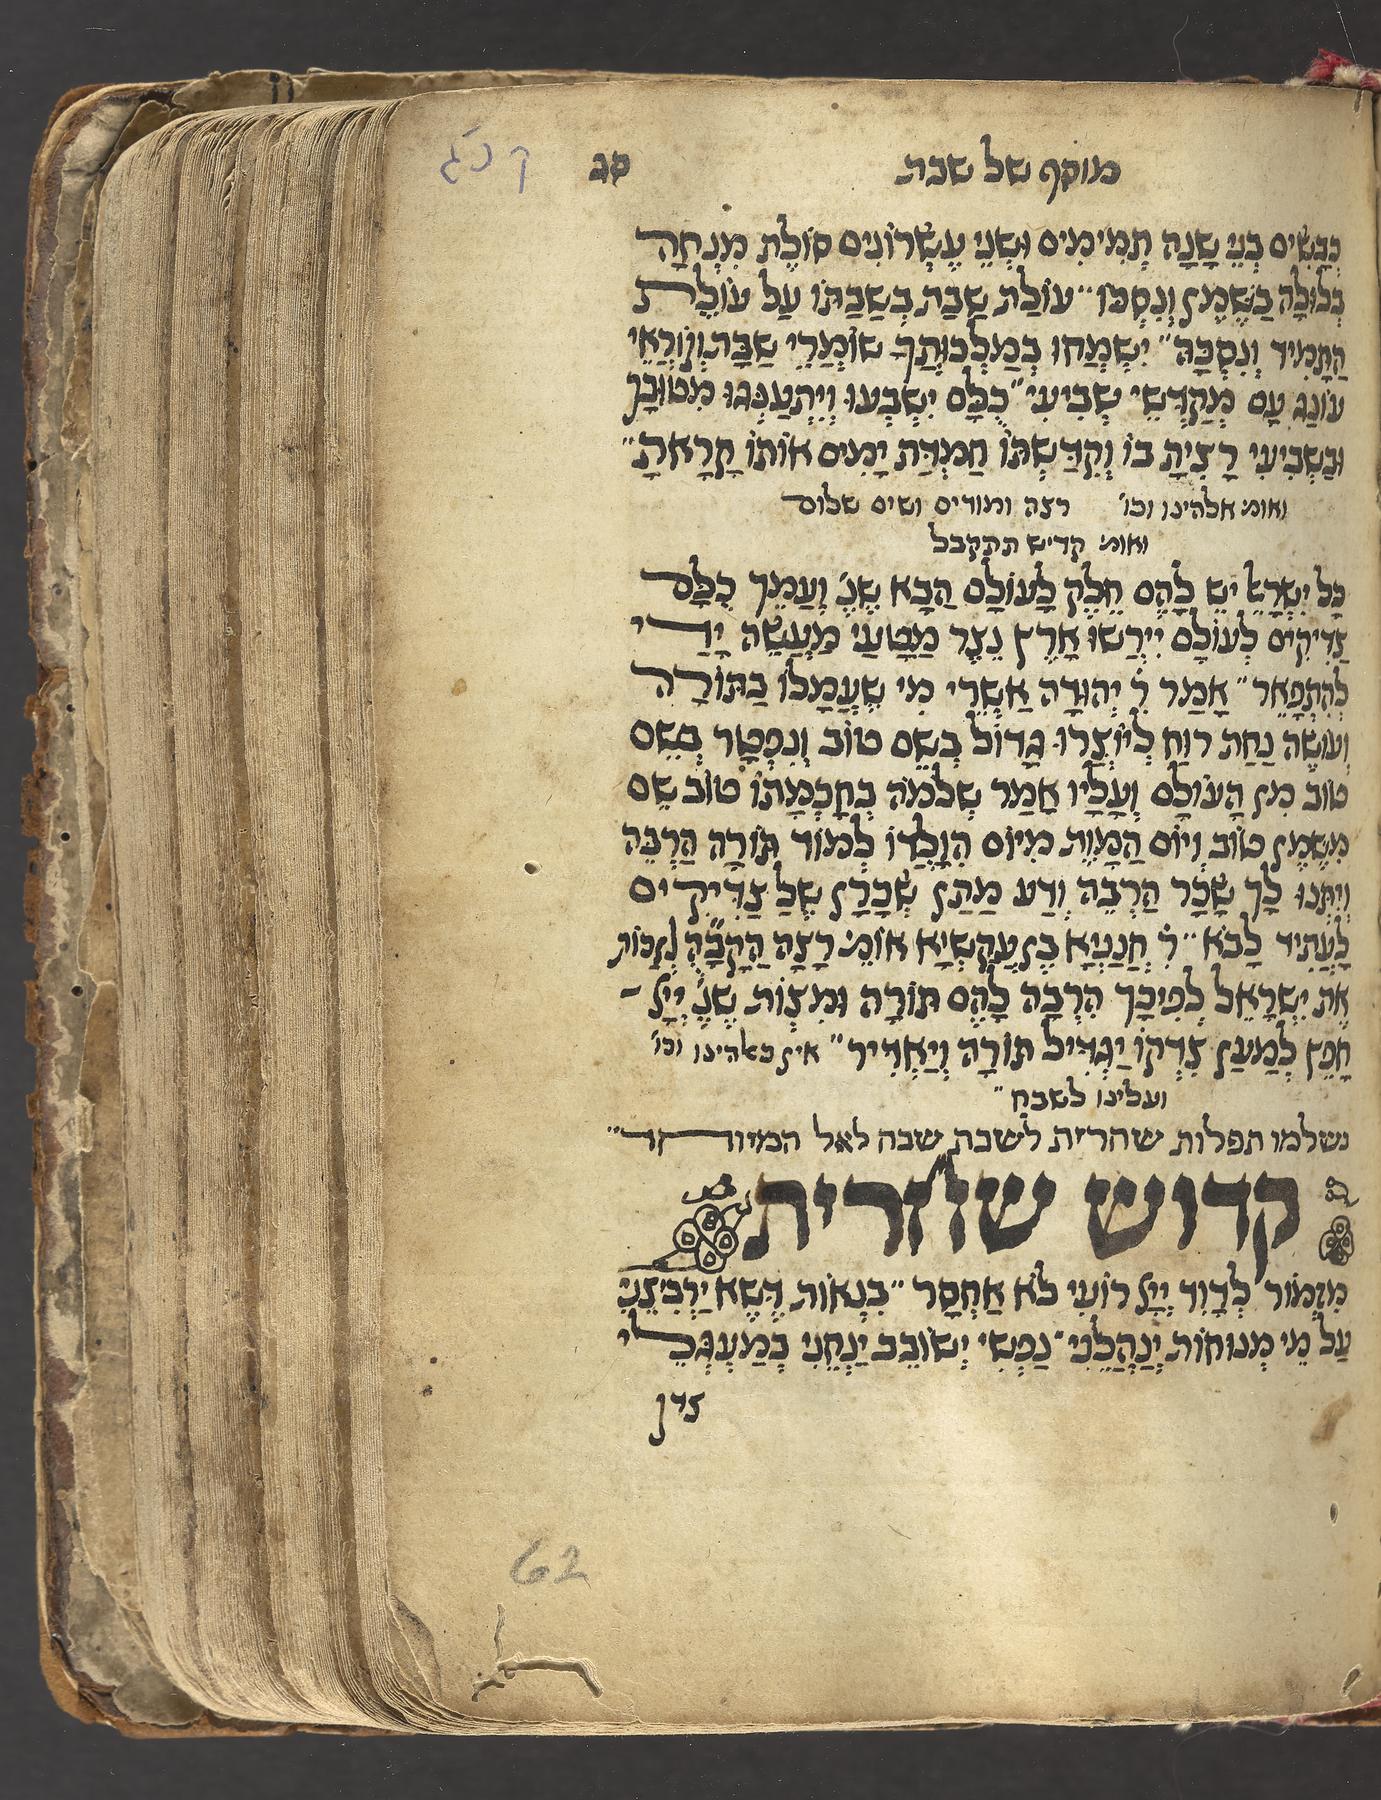 מוסף של שבת סג
קכג
כְּבָשִׂים בְּנֵי שָׁנָה תְּמִימִים וּשְׁנֵי עֶשְׂרוֹנִים סוֹלֶת מִנְחָה
בְּלוּלָה בַשֶּׁמֶן וְנִסְכּוֹ עוֹלַת שַׁבַּת בְּשַׁבַּתּוֹ עַל עוֹלַת
הַתָּמִיד וְנִסְכָּהּ יִשְׂמְחוּ בְּמַלְכוּתֶךָ שׁוֹמְרֵי שַׁבָּת וְקוֹרְאֵי
עוֹנֶג עַם מְקַדְּשֵׁי שְׁבִיעִי כֻּלָּם יִשְׂבְּעוּ וְיִתְעַנְּגוּ מִטּוּבָךְ
וּבַשְּׁבִיעִי רָצִיתָ בּוֹ וְקִדַּשְׁתּוֹ חֶמְדַּת יָמִים אוֹתוֹ קָרָאתָ
ואומ׳ אלהינו וכו׳ רצה ומודים ושים שלום
ואומ׳ קדיש תתקבל
כָּל יִשְׂרָאֵל יֵשׁ לָהֶם חֵלֶק לָעוֹלָם הַבָּא שֶׁנֶּ׳ וְעַמֵּךְ כֻּלָּם
צַדִּיקִים לְעוֹלָם יִירְשׁוּ אָרֶץ נֵצֶר מַטָּעַי מַעֲשֵׂה יָדַי
לְהִתְפָּאֵר אָמַר ר׳ יְהוּדָה אַשְׁרֵי מִי שֶׁעֲמָלוֹ בַּתּוֹרָה
וְעוֹשֶׂה נַחַת רוּחַ לְיוֹצְרוֹ גָּדוֹל בְּשֵׁם טוֹב וְנִפְטָר בְּשֵׁם
טוֹב מִן הָעוֹלָם וְעָלָיו אָמַר שְׁלֹמֹה בְּחָכְמָתוֹ טוֹב שֵׁם
מִשֶּׁמֶן טוֹב וְיוֹם הַמָּוֶת מִיּוֹם הִוָּלְדוֹ לְמוֹד תּוֹרָה הַרְבֵּה
וְיִתְּנוּ לָךְ שָׂכָר הַרְבֵּה וְדַע מַתַּן שְׂכָרָן שֶׁל צַדִּיקִים
לֶעָתִיד לָבֹא ר׳ חֲנַנְיָא בֶּן עֲקַשְׁיָא אוֹמֵ׳ רָצָה הַקָּבָּ״ה לְזַכּוֹת
אֶת יִשְׂרָאֵל לְפִיכָךְ הִרְבָּה לָהֶם תּוֹרָה וּמִצְוֹת שֶׁנֶּ׳ יְיָ
חָפֵץ לְמַעַן צִדְקוֹ יַגְדִּיל תּוֹרָה וְיַאְדִּיר אין כאלהינו וכו׳
ועלינו לשבח
נשלמו תפלות שחרית לשבת שבח לאל המיוחד
קדוש שחרית
מִזְמוֹר לְדָוִד יְיָ רוֹעִי לֹא אֶחְסָר בִּנְאוֹת דֶּשֶׁא יַרְבִּיצֵנִי
עַל מֵי מְנוּחוֹת יְנַהֲלֵנִי נַפְשִׁי יְשׁוֹבֵב יַנְחֵנִי בְמַעְגְּלֵי
צדק
62